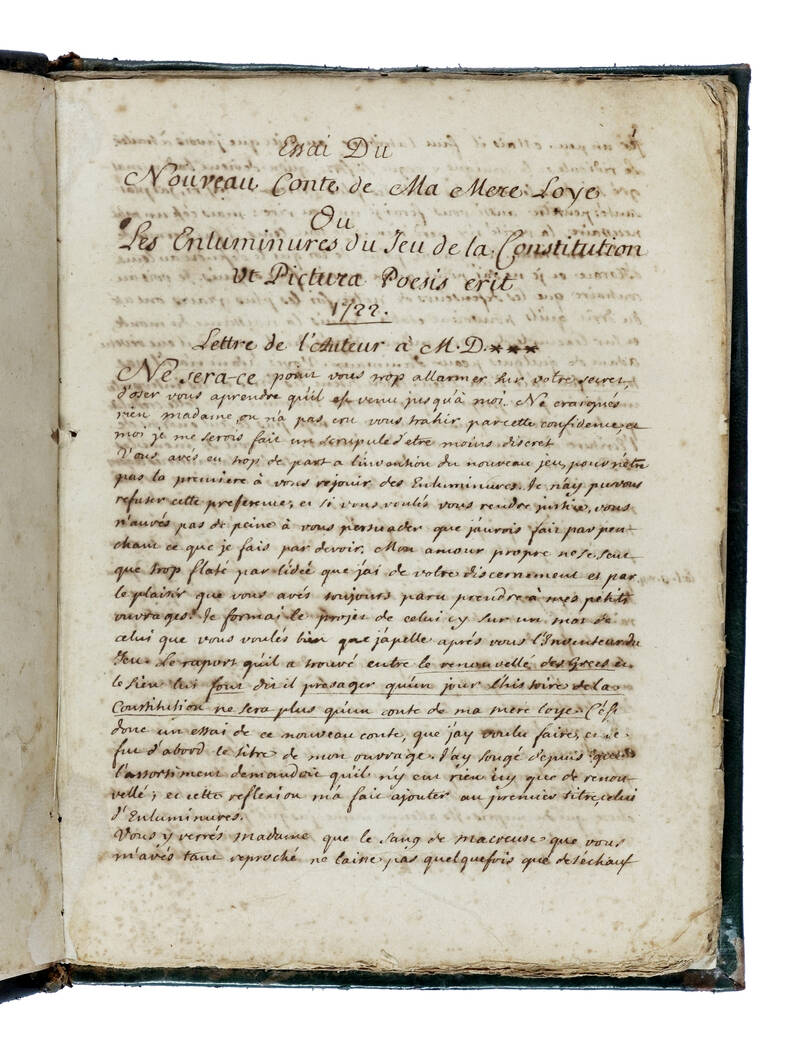 1
Essai Du
Nouveau Conte de Ma Mere Loye
Ou
Les Enluminures du Jeu de la Constitution
Ut Pictura Poesis erit
1722.
Lettre de l'Auteur à M. D. ***
Ne sera-ce point vous trop allarmer sur votre secret,
d'oser vous aprendre qu'il est venu jusqu'à moi. Ne craignés
rien madame, on n'a pas cru vous trahir par cette confidence, et
moi je me serois fait un scrupule d'etre moins discret
Vous avés eu trop de part a l'invention du nouveau jeu, pour n'être
pas la premiere à vous rejouir des Enluminures. Je n'ay pu vous
refuser cette preference, et si vous voulés vous rendre justice, vous
n'aurés pas de peine à vous persuader que j'aurois fait par pen-
chant ce que je fais par devoir. Mon amour propre ne se sent
que trop flaté par l'idée que j'ai de votre discernement et par
le plaisir que vous avés toujours paru prendre à mes petits
ouvrages. Je formai le projet de celui cy sur un mot de
celui que vous voulés bien que j'apelle aprés vous l'Inventeur du
Jeu. Le raport qu'il a trouvé entre le renouvellé des Grecs et
le sien lui font dit il presager qu'un jour l'histoire de la
Constitution ne sera plus qu'un conte de ma mere loye. C'est
donc un essai de ce nouveau conte, que j'ay voulu faire, et ce
fut d'abord le titre de mon ouvrage. J'ay songé depuis que
l'assortiment demandoit qu'il n'y eut rien icy que de renou-
vellé; et cette reflexion m'a fait ajouter au premier titre, celui
d'Enluminures.
Vous y verrés madame que le sang de macreuse que vous
m'avés tant reproché ne laisse pas quelquefois que de s'échauf